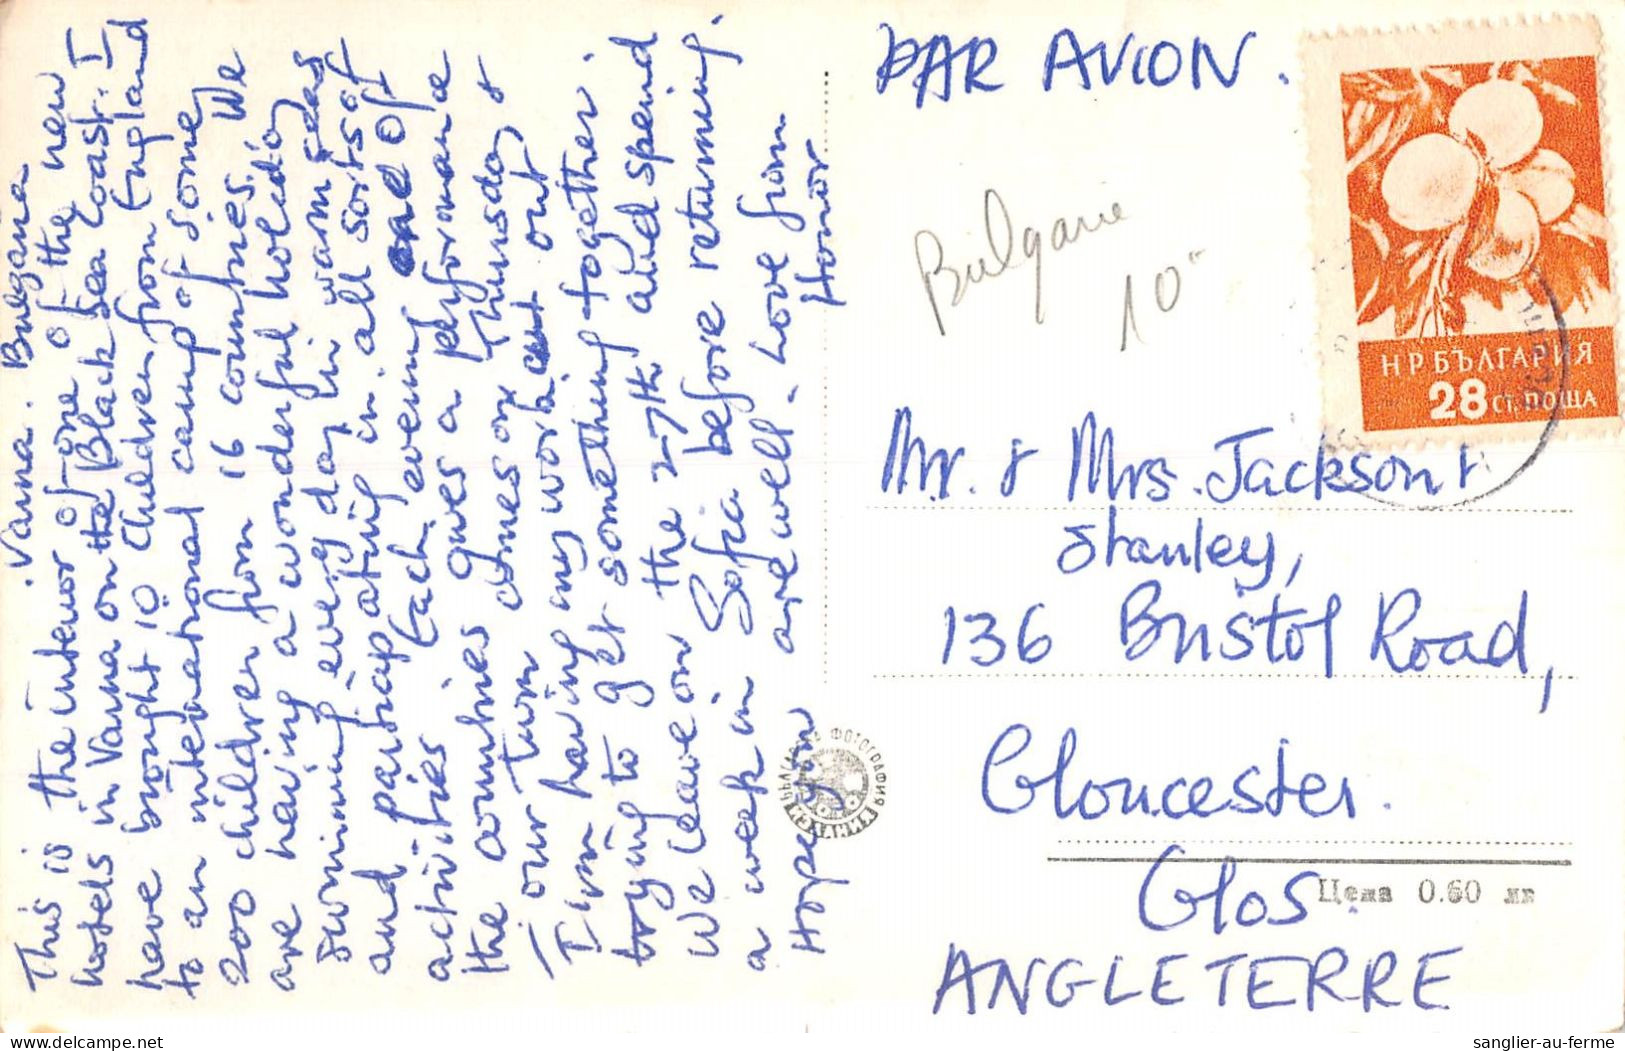 Varna. Bulgaria
This is the interior of one of the new
hotels in Varna on the Black Sea Coast. I
have brought 10 children from England
to an international camp of some
200 children from 16 countries. We
are having a wonderful holiday
swimming every day in warm seas
and participating in all sorts of
activities. Each evening one of
the countries gives a performance
our turn comes on Thursday &
I'm having my work cut out
trying to get something together.
We leave on the 27th and spend
a week in Sofia before returning.
Hope you are well. Love from
Honor
PAR AVION.
Bulgarie
10
НР БЪЛГАРИЯ
28 СТ. ПОЩА
Mr. & Mrs. Jackson &
Stanley,
136 Bristol Road,
Gloucester.
Glos
ANGLETERRE
БЪЛГАРСКА ФОТОГРАФИЯ
Цена 0.60 лв
sanglier-au-ferme